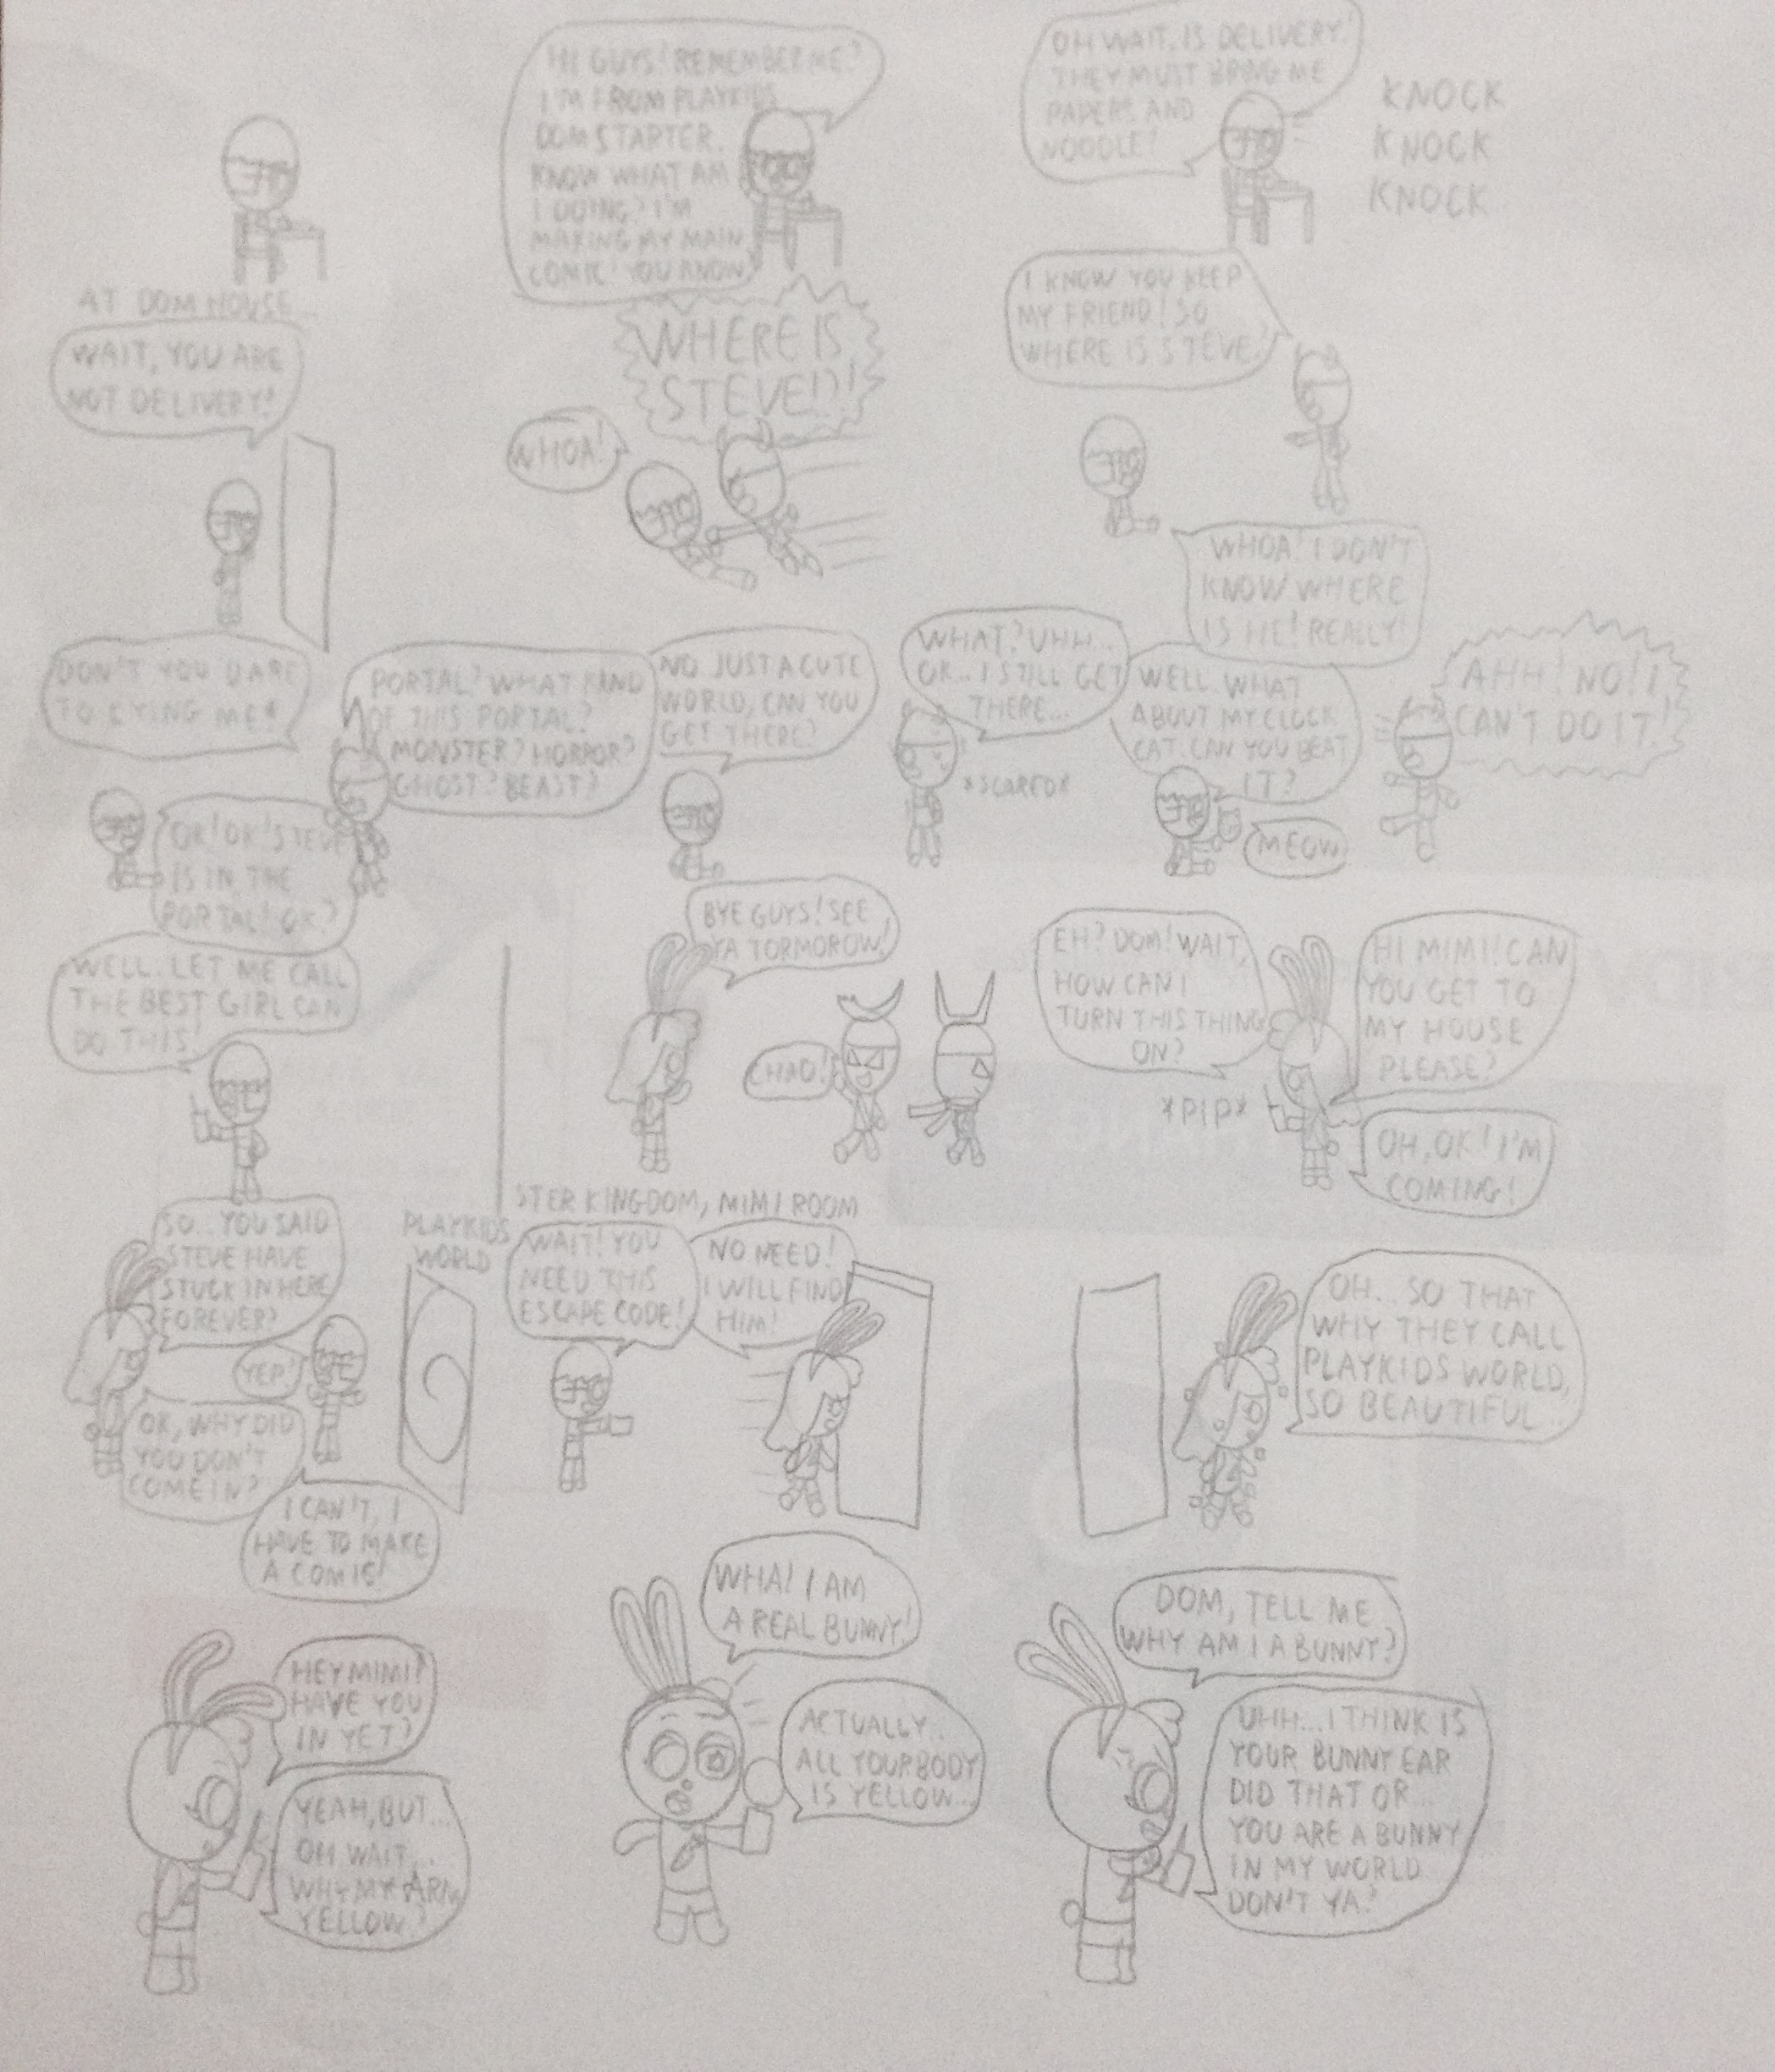 HI GUYS! REMEMBER ME?
I'M FROM PLAYKIDS
DOM STARTER.
KNOW WHAT AM
I DOING? I'M
MAKING MY MAIN
COMIC! YOU KNOW,
OH WAIT, IS DELIVERY!
THEY MUST BRING ME
PAPERS AND
NOODLE!
KNOCK
KNOCK
KNOCK
AT DOM HOUSE...
WAIT, YOU ARE
NOT DELIVERY!
WHERE IS
STEVE!?!
WHOA!
I KNOW YOU KEEP
MY FRIEND! SO
WHERE IS STEVE?
WHOA! I DON'T
KNOW WHERE
IS HE! REALLY!
DON'T YOU DARE
TO LYING ME!
OK! OK! STEVE
IS IN THE
PORTAL! OK?
PORTAL? WHAT KIND
OF THIS PORTAL?
MONSTER? HORROR?
GHOST? BEAST?
NO. JUST A CUTE
WORLD, CAN YOU
GET THERE?
WHAT? UHH...
OK... I STILL GET
THERE...
*SCARED*
WELL. WHAT
ABOUT MY CLOCK
CAT. CAN YOU BEAT
IT?
MEOW
AHH! NO! I
CAN'T DO IT!
WELL. LET ME CALL
THE BEST GIRL CAN
DO THIS!
BYE GUYS! SEE
YA TORMOROW!
CHAO!
EH? DOM! WAIT,
HOW CAN I
TURN THIS THING
ON?
*PIP*
HI MIMI! CAN
YOU GET TO
MY HOUSE
PLEASE?
OH, OK! I'M
COMING!
STER KINGDOM, MIMI ROOM
SO... YOU SAID
STEVE HAVE
STUCK IN HERE
FOREVER?
YEP!
OK, WHY DID
YOU DON'T
COME IN?
I CAN'T, I
HAVE TO MAKE
A COMIC!
PLAYKIDS
WORLD
WAIT! YOU
NEED THIS
ESCAPE CODE!
NO NEED!
I WILL FIND
HIM!
OH... SO THAT
WHY THEY CALL
PLAYKIDS WORLD,
SO BEAUTIFUL...
HEY MIMI?
HAVE YOU
IN YET?
YEAH, BUT...
OH WAIT...
WHY MY ARM
YELLOW?
WHA! I AM
A REAL BUNNY!
ACTUALLY..
ALL YOUR BODY
IS YELLOW...
DOM, TELL ME
WHY AM I A BUNNY?
UHH... I THINK IS
YOUR BUNNY EAR
DID THAT OR...
YOU ARE A BUNNY
IN MY WORLD
DON'T YA?